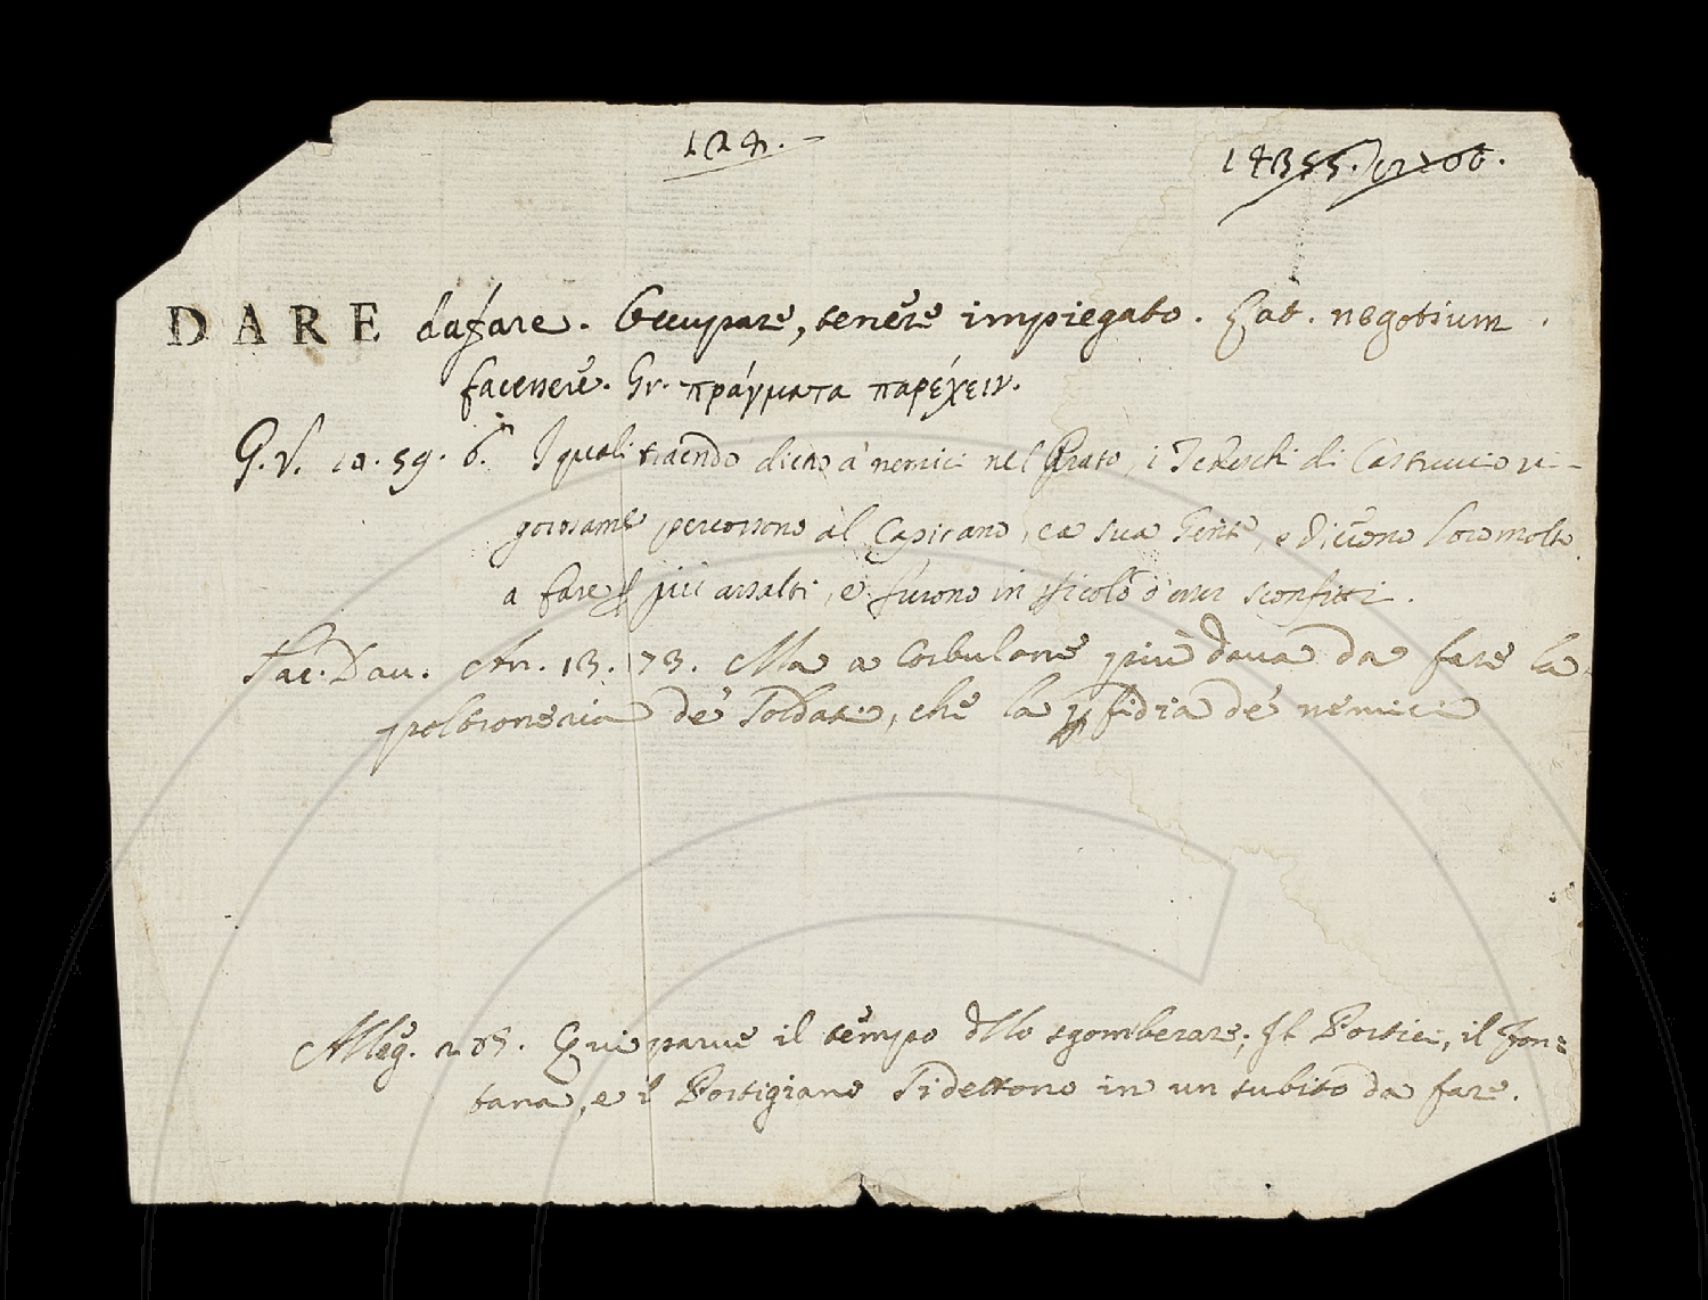 124.
14355.
DARE dafare. Occupare, tenere impiegato. Lat. negotium
facessere. Gr. πράγματα παρέχειν.
G. V. 10. 59. 6. I quali traendo dietro a' nemici nel Prato, i Tedeschi di Castruccio vi-
gorosamte percossono al Capitano, e a sua Gente, e dierono loro molto
a fare p più assalti, e furono in picolo d'esser sconfitti.
Tac. Dav. An. 13. 173. Ma a Corbulone più dava da fare la
poltroneria de' Soldati, che la pfidia de' nemici
Alleg. 205. Qui parve il tempo dllo sgomberare; Il Portici, il Fon=
tana, e 'l Portigiani Ti dettono in un subito da fare.